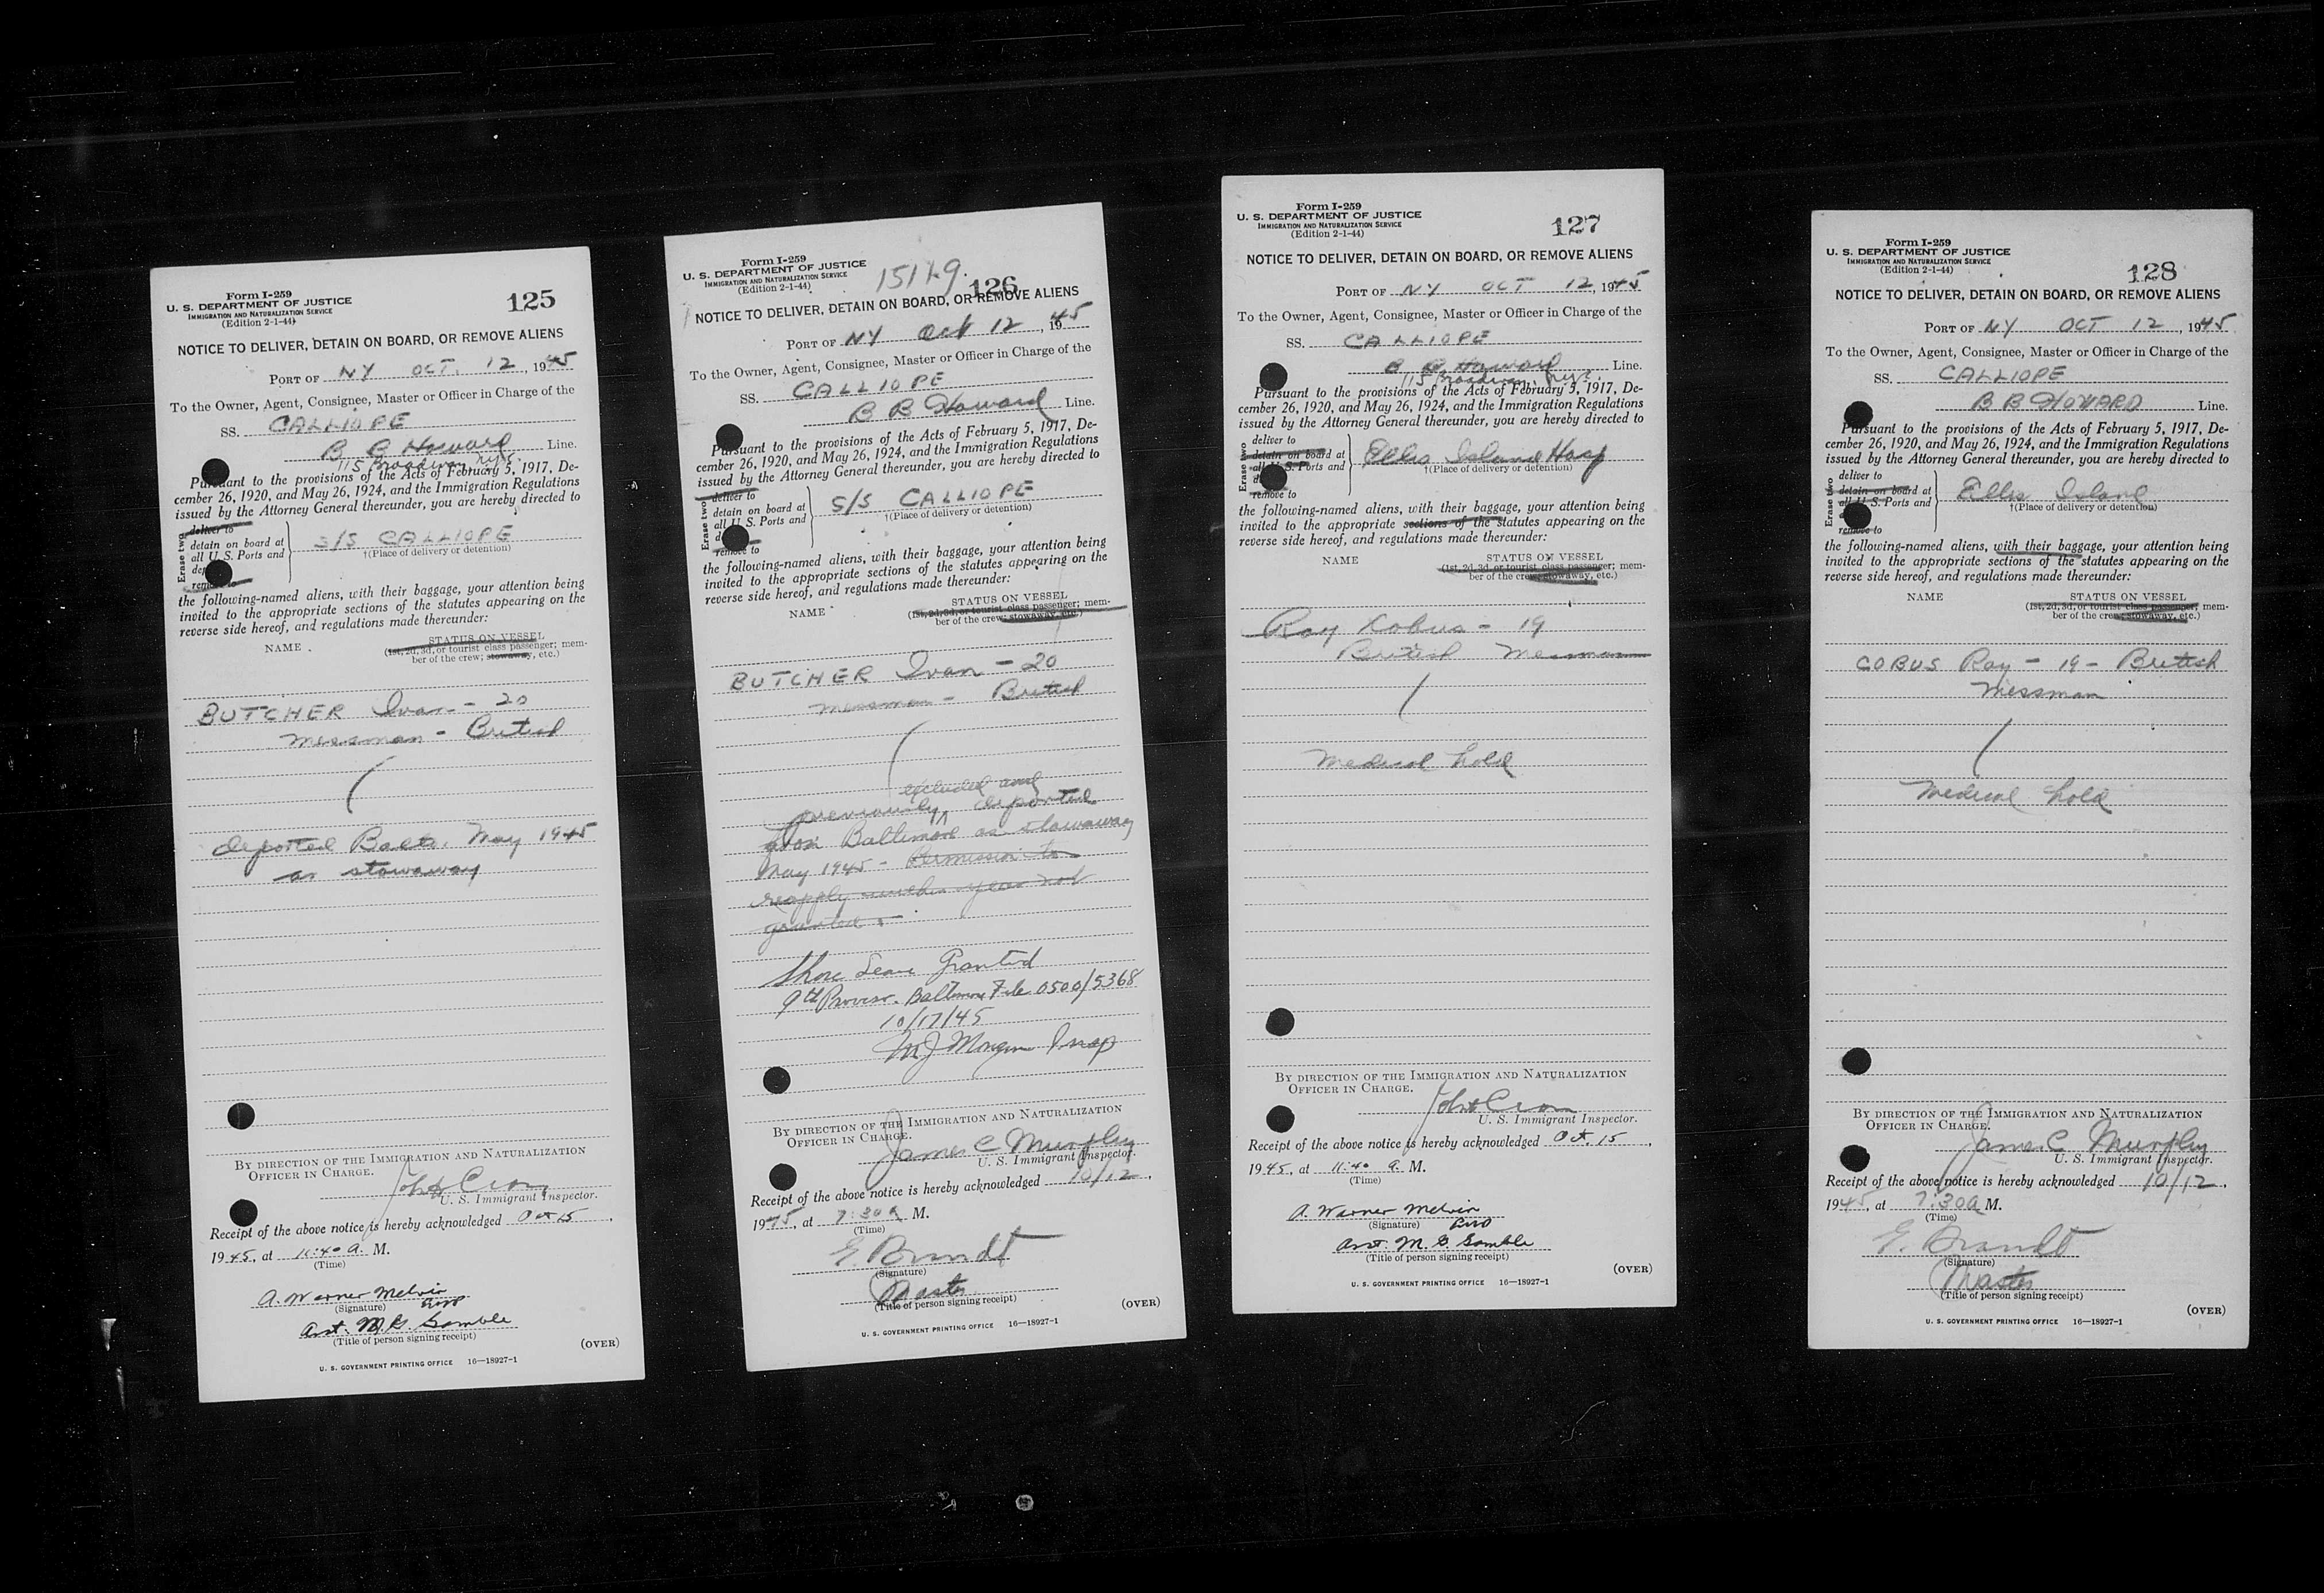 Form I-259
U. S. DEPARTMENT OF JUSTICE
IMMIGRATION AND NATURALIZATION SERVICE
(Edition 2-1-44)
125
NOTICE TO DELIVER, DETAIN ON BOARD, OR REMOVE ALIENS
PORT OF NY OCT. 12, 1945
To the Owner, Agent, Consignee, Master or Officer in Charge of the
SS. CALLIOPE
B B Howard Line.
115 Broadway, NYC.
Pursuant to the provisions of the Acts of February 5, 1917, De-
cember 26, 1920, and May 26, 1924, and the Immigration Regulations
issued by the Attorney General thereunder, you are hereby directed to
Erase two
deliver to
detain on board at
all U. S. Ports and
S/S CALLIOPE
†(Place of delivery or detention)
remove to
the following-named aliens, with their baggage, your attention being
invited to the appropriate sections of the statutes appearing on the
reverse side hereof, and regulations made thereunder:
NAME
STATUS ON VESSEL
(1st, 2d, 3d, or tourist class passenger; mem-
ber of the crew; stowaway, etc.)
BUTCHER Ivan - 20
messman - British
deported Balto. May 1945
as stowaway
BY DIRECTION OF THE IMMIGRATION AND NATURALIZATION
OFFICER IN CHARGE.
U. S. Immigrant Inspector.
Receipt of the above notice is hereby acknowledged Oct 15,
1945, at 11:40 a. M.
(Time)
A. Warner Melvin
(Signature)
Asst. M. G. Gamble
(Title of person signing receipt)
(OVER)
U. S. GOVERNMENT PRINTING OFFICE 16—18927-1
Form I-259
U. S. DEPARTMENT OF JUSTICE
IMMIGRATION AND NATURALIZATION SERVICE
(Edition 2-1-44)
126
NOTICE TO DELIVER, DETAIN ON BOARD, OR REMOVE ALIENS
PORT OF NY Oct 12, 1945
To the Owner, Agent, Consignee, Master or Officer in Charge of the
SS. CALLIOPE
B B Howard Line.
Pursuant to the provisions of the Acts of February 5, 1917, De-
cember 26, 1920, and May 26, 1924, and the Immigration Regulations
issued by the Attorney General thereunder, you are hereby directed to
Erase two
deliver to
detain on board at
all U. S. Ports and
S/S CALLIOPE
†(Place of delivery or detention)
remove to
the following-named aliens, with their baggage, your attention being
invited to the appropriate sections of the statutes appearing on the
reverse side hereof, and regulations made thereunder:
NAME
STATUS ON VESSEL
(1st, 2d, 3d, or tourist class passenger; mem-
ber of the crew; stowaway, etc.)
BUTCHER Ivan - 20
messman - British
excluded and
previously deported
from Baltimore as stowaway
May 1945 - Permission to
reapply within year not
granted.
Shore Leave Granted
9th Proviso. Baltimore File 0500/5368
10/17/45
Insp
BY DIRECTION OF THE IMMIGRATION AND NATURALIZATION
OFFICER IN CHARGE.
James C Murphy
U. S. Immigrant Inspector.
Receipt of the above notice is hereby acknowledged 10/12,
1945, at 7:30 a M.
(Time)
E. Brandt
(Signature)
Master
(Title of person signing receipt)
(OVER)
U. S. GOVERNMENT PRINTING OFFICE 16—18927-1
Form I-259
U. S. DEPARTMENT OF JUSTICE
IMMIGRATION AND NATURALIZATION SERVICE
(Edition 2-1-44)
127
NOTICE TO DELIVER, DETAIN ON BOARD, OR REMOVE ALIENS
PORT OF NY OCT 12, 1945
To the Owner, Agent, Consignee, Master or Officer in Charge of the
SS. CALLIOPE
B B Howard Line.
115 Broadway, NYC.
Pursuant to the provisions of the Acts of February 5, 1917, De-
cember 26, 1920, and May 26, 1924, and the Immigration Regulations
issued by the Attorney General thereunder, you are hereby directed to
Erase two
deliver to
detain on board at
all U. S. Ports and
Ellis Island Hosp
†(Place of delivery or detention)
remove to
the following-named aliens, with their baggage, your attention being
invited to the appropriate sections of the statutes appearing on the
reverse side hereof, and regulations made thereunder:
NAME
STATUS ON VESSEL
(1st, 2d, 3d, or tourist class passenger; mem-
ber of the crew; stowaway, etc.)
Ray Cobus - 19
British Messman
Medical hold
BY DIRECTION OF THE IMMIGRATION AND NATURALIZATION
OFFICER IN CHARGE.
U. S. Immigrant Inspector.
Receipt of the above notice is hereby acknowledged Oct. 15,
1945, at 11:40 a. M.
(Time)
A. Warner Melvin
(Signature)
Asst. M. G. Gamble
(Title of person signing receipt)
(OVER)
U. S. GOVERNMENT PRINTING OFFICE 16—18927-1
Form I-259
U. S. DEPARTMENT OF JUSTICE
IMMIGRATION AND NATURALIZATION SERVICE
(Edition 2-1-44)
128
NOTICE TO DELIVER, DETAIN ON BOARD, OR REMOVE ALIENS
PORT OF NY OCT 12, 1945
To the Owner, Agent, Consignee, Master or Officer in Charge of the
SS. CALLIOPE
B B HOWARD Line.
Pursuant to the provisions of the Acts of February 5, 1917, De-
cember 26, 1920, and May 26, 1924, and the Immigration Regulations
issued by the Attorney General thereunder, you are hereby directed to
Erase two
deliver to
detain on board at
all U. S. Ports and
Ellis Island
†(Place of delivery or detention)
remove to
the following-named aliens, with their baggage, your attention being
invited to the appropriate sections of the statutes appearing on the
reverse side hereof, and regulations made thereunder:
NAME
STATUS ON VESSEL
(1st, 2d, 3d, or tourist class passenger; mem-
ber of the crew; stowaway, etc.)
COBUS Ray - 19 - British
Messman
Medical hold
BY DIRECTION OF THE IMMIGRATION AND NATURALIZATION
OFFICER IN CHARGE.
James C Murphy
U. S. Immigrant Inspector.
Receipt of the above notice is hereby acknowledged 10/12,
1945, at 7:30 a M.
(Time)
E. Brandt
(Signature)
Master
(Title of person signing receipt)
(OVER)
U. S. GOVERNMENT PRINTING OFFICE 16—18927-1